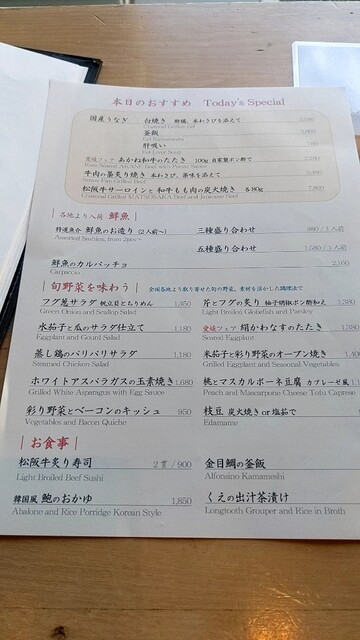 本日のおすすめ Today's Special
国産うなぎ 白焼き 野橘、本わさびを添えて
釜飯
肝吸い
Eel Liver Soup
愛媛フェア あかね和牛のたたき 100g 自家製ポン酢で 2,280
牛肉の藁炙り焼き 本わさび、薬味を添えて
松阪牛サーロインと和牛もも肉の炭火焼き 各80g 7,800
Charcoal Grilled MATSUSAKA Beef and Japanese Beef
各地より入荷 鮮魚
特選魚介 鮮魚のお造り (2人前〜) 三種盛り合わせ 980 / 1人前
Assorted Sashimi, from 2pax~
五種盛り合わせ 1,580 / 1人前
鮮魚のカルパッチョ 2,160
Carpaccio
旬野菜を味わう 全国各地より取り寄せた旬の野菜、素材を活かした調理法で
フグ葱サラダ 帆立貝とちりめん 1,850 芹とフグの炙り 柚子胡椒ポン酢和え 1,380
Green Onion and Scallop Salad Light Broiled Globefish and Parsley
水茄子と瓜のサラダ仕立て 1,180 愛媛フェア 絹かわなすのたたき 1,280
Eggplant and Gourd Salad Seared Eggplant
蒸し鶏のパリパリサラダ 1,180 米茄子と彩り野菜のオーブン焼き
Steamed Chicken Salad Grilled Eggplant and Seasonal Vegetables
ホワイトアスパラガスの玉素焼き 1,680 桃とマスカルポーネ豆腐 カプレーゼ風
Grilled White Asparagus with Egg Sauce Peach and Mascarpone Cheese Tofu Caprese
彩り野菜とベーコンのキッシュ 950 枝豆 炭火焼き or 塩茹で
Vegetables and Bacon Quiche Edamame
お食事
松阪牛炙り寿司 2貫 / 900 金目鯛の釜飯
Light Broiled Beef Sushi Alfonsino Kamameshi
韓国風 鮑のおかゆ 1,850 くえの出汁茶漬け
Abalone and Rice Porridge Korean Style Longtooth Grouper and Rice in Broth